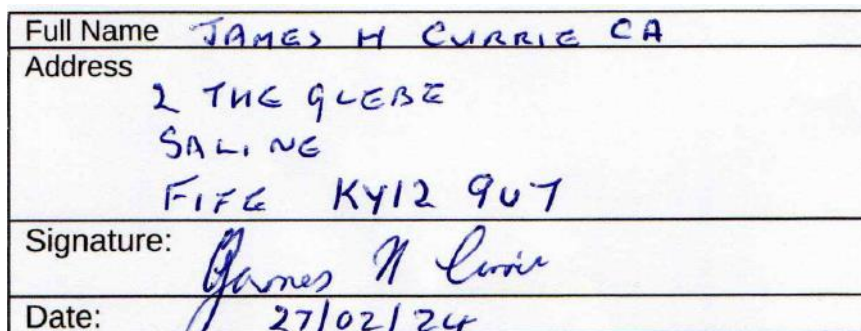 Full Name JAMES H CURRIE CA
Address
2 THE GLEBE
SALINE
FIFE KY12 9UT
Signature: James H Currie
Date: 27/02/24